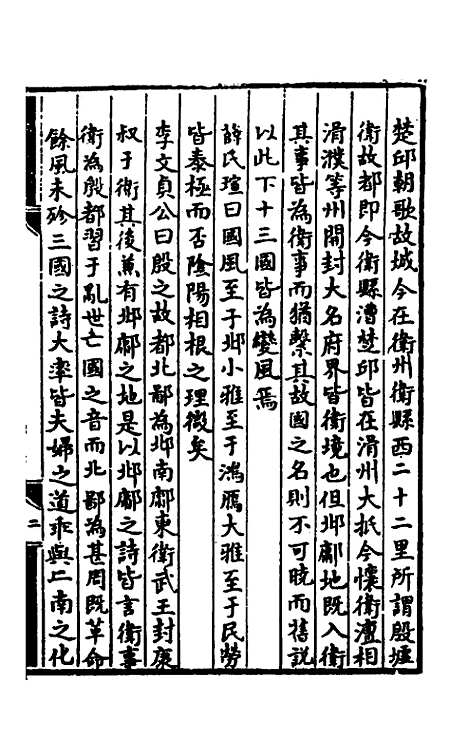 楚邱朝歌故城今在衛州衛縣西二十二里所謂殷墟
衛故都即今衛縣漕楚邱皆在滑州大抵今懷衛澶相
滑濮等州開封大名府界皆衛境也但邶鄘地既入衛
其事皆為衛事而猶繫其故國之名則不可曉而舊說
以此下十三國皆為變風焉
薛氏瑄曰國風至于邶小雅至于鴻鴈大雅至于民勞
皆泰極而否陰陽相根之理微矣
李文貞公曰殷之故都北鄙為邶南鄘東衛武王封康
叔于衛其後兼有邶鄘之地是以邶鄘之詩皆言衛事
衛為殷都習于亂世亡國之音而北鄙為甚周既革命
餘風未殄三國之詩大率皆夫婦之道乖與二南之化
二